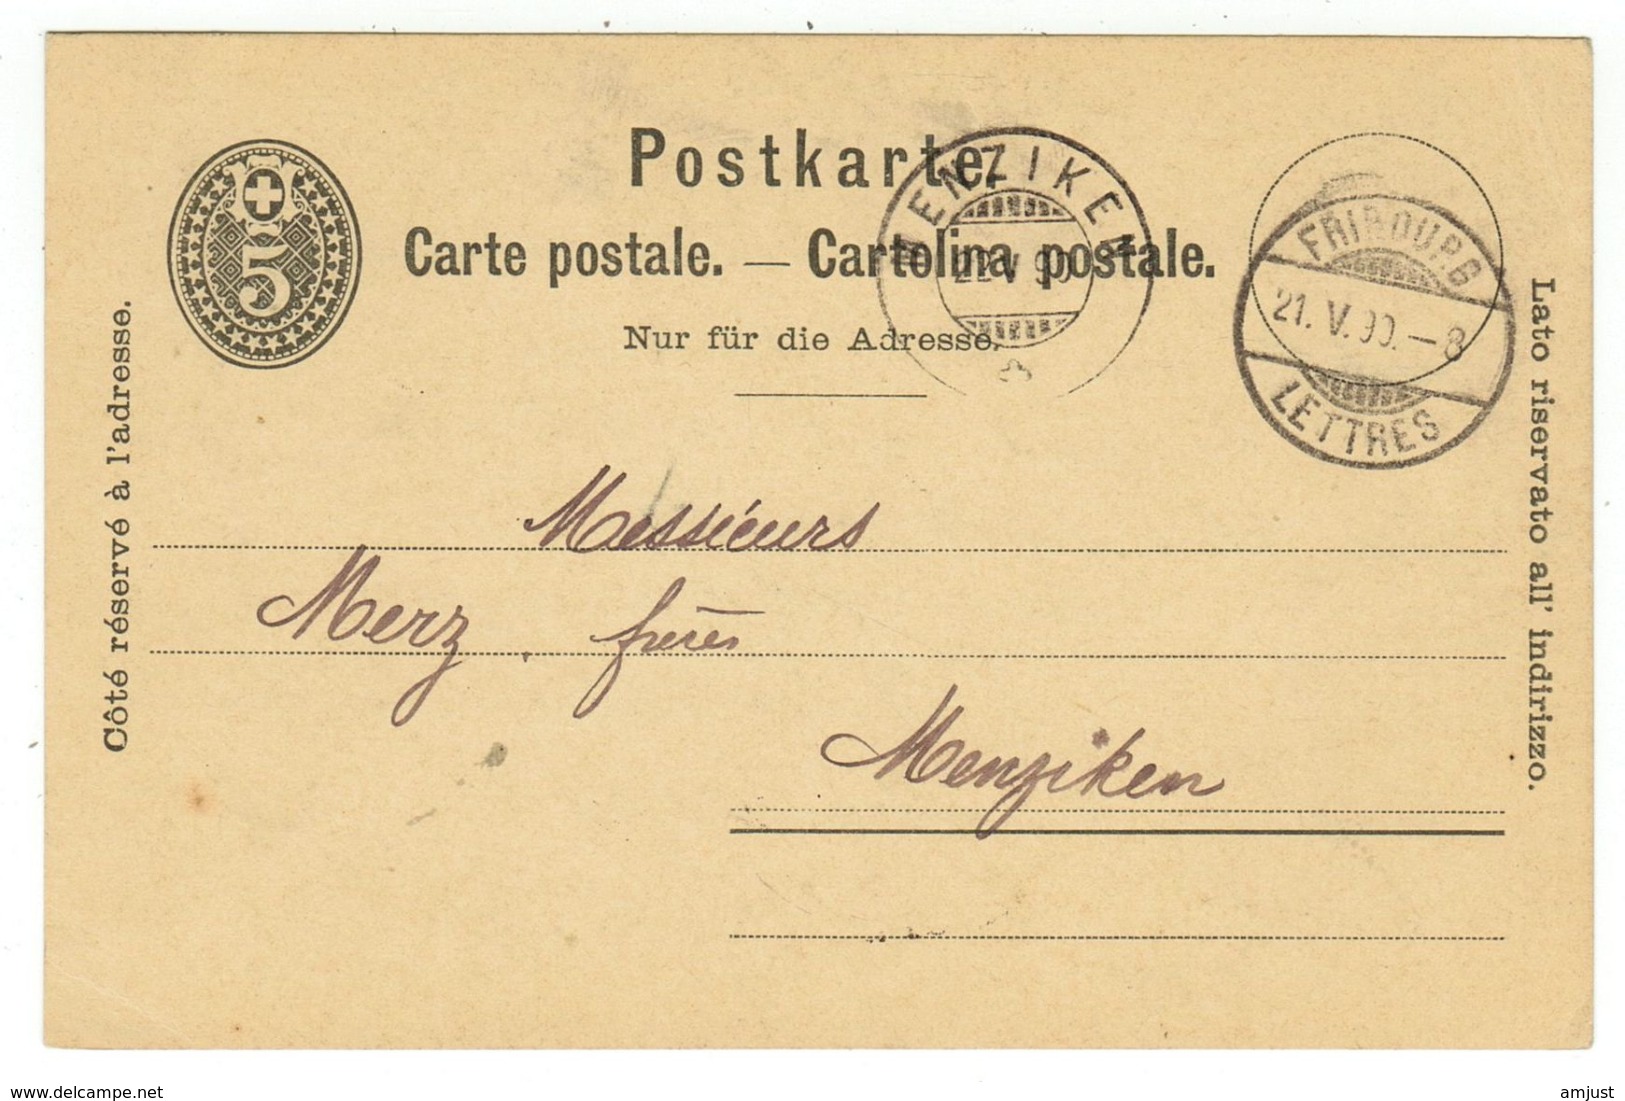 Postkarte.
Carte postale. — Cartolina postale.
Nur für die Adresse.
5
MENZIKEN
22 V 90
FRIBOURG
21. V. 90. — 8
LETTRES
Côté réservé à l'adresse.
Lato riservato all' indirizzo.
Messieurs
Merz, frères
Menziken
www.delcampe.net
amjust